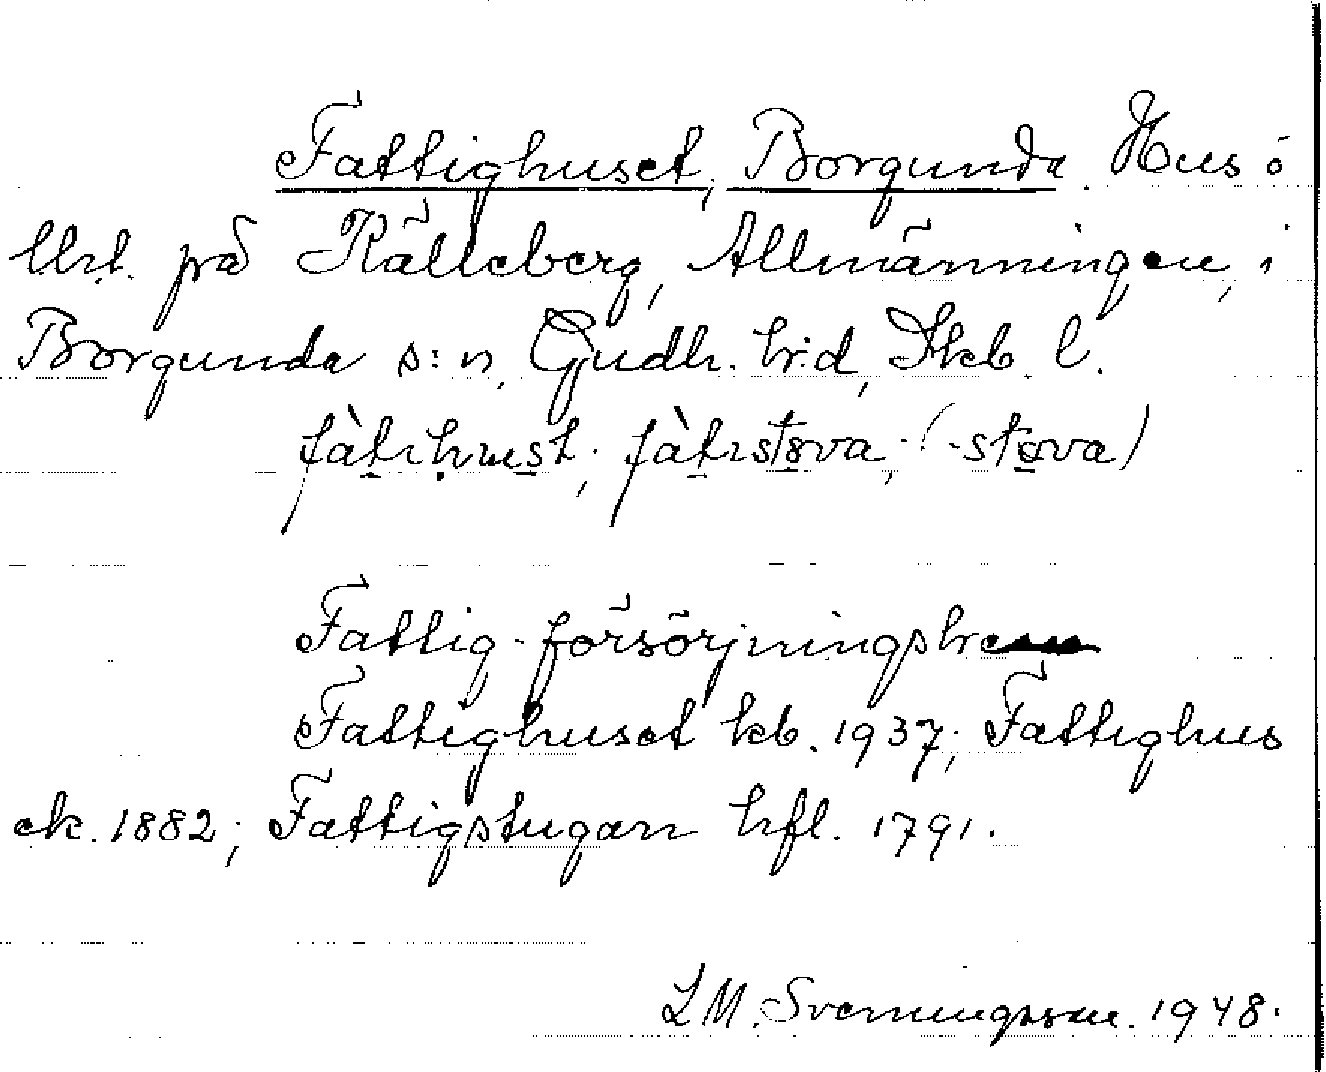 Fattighuset, Borgunda. Hus ö
llrt. på Källeberg, Allmänningen, i
Borgunda s:n, Gudh. hrd, Skb. l.
fàtihust; fàtistova; (-stova)
Fattig-försörjningshem
Fattighuset kb. 1937; Fattighus
ek. 1882; Fattigstugan hfl. 1791.
L M. Svenningsson. 1948.